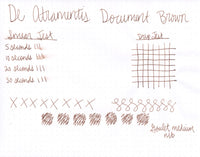 De Atramentis Document Brown
Smear Test
5 seconds
10 seconds
20 seconds
30 seconds
Goulet medium
nib